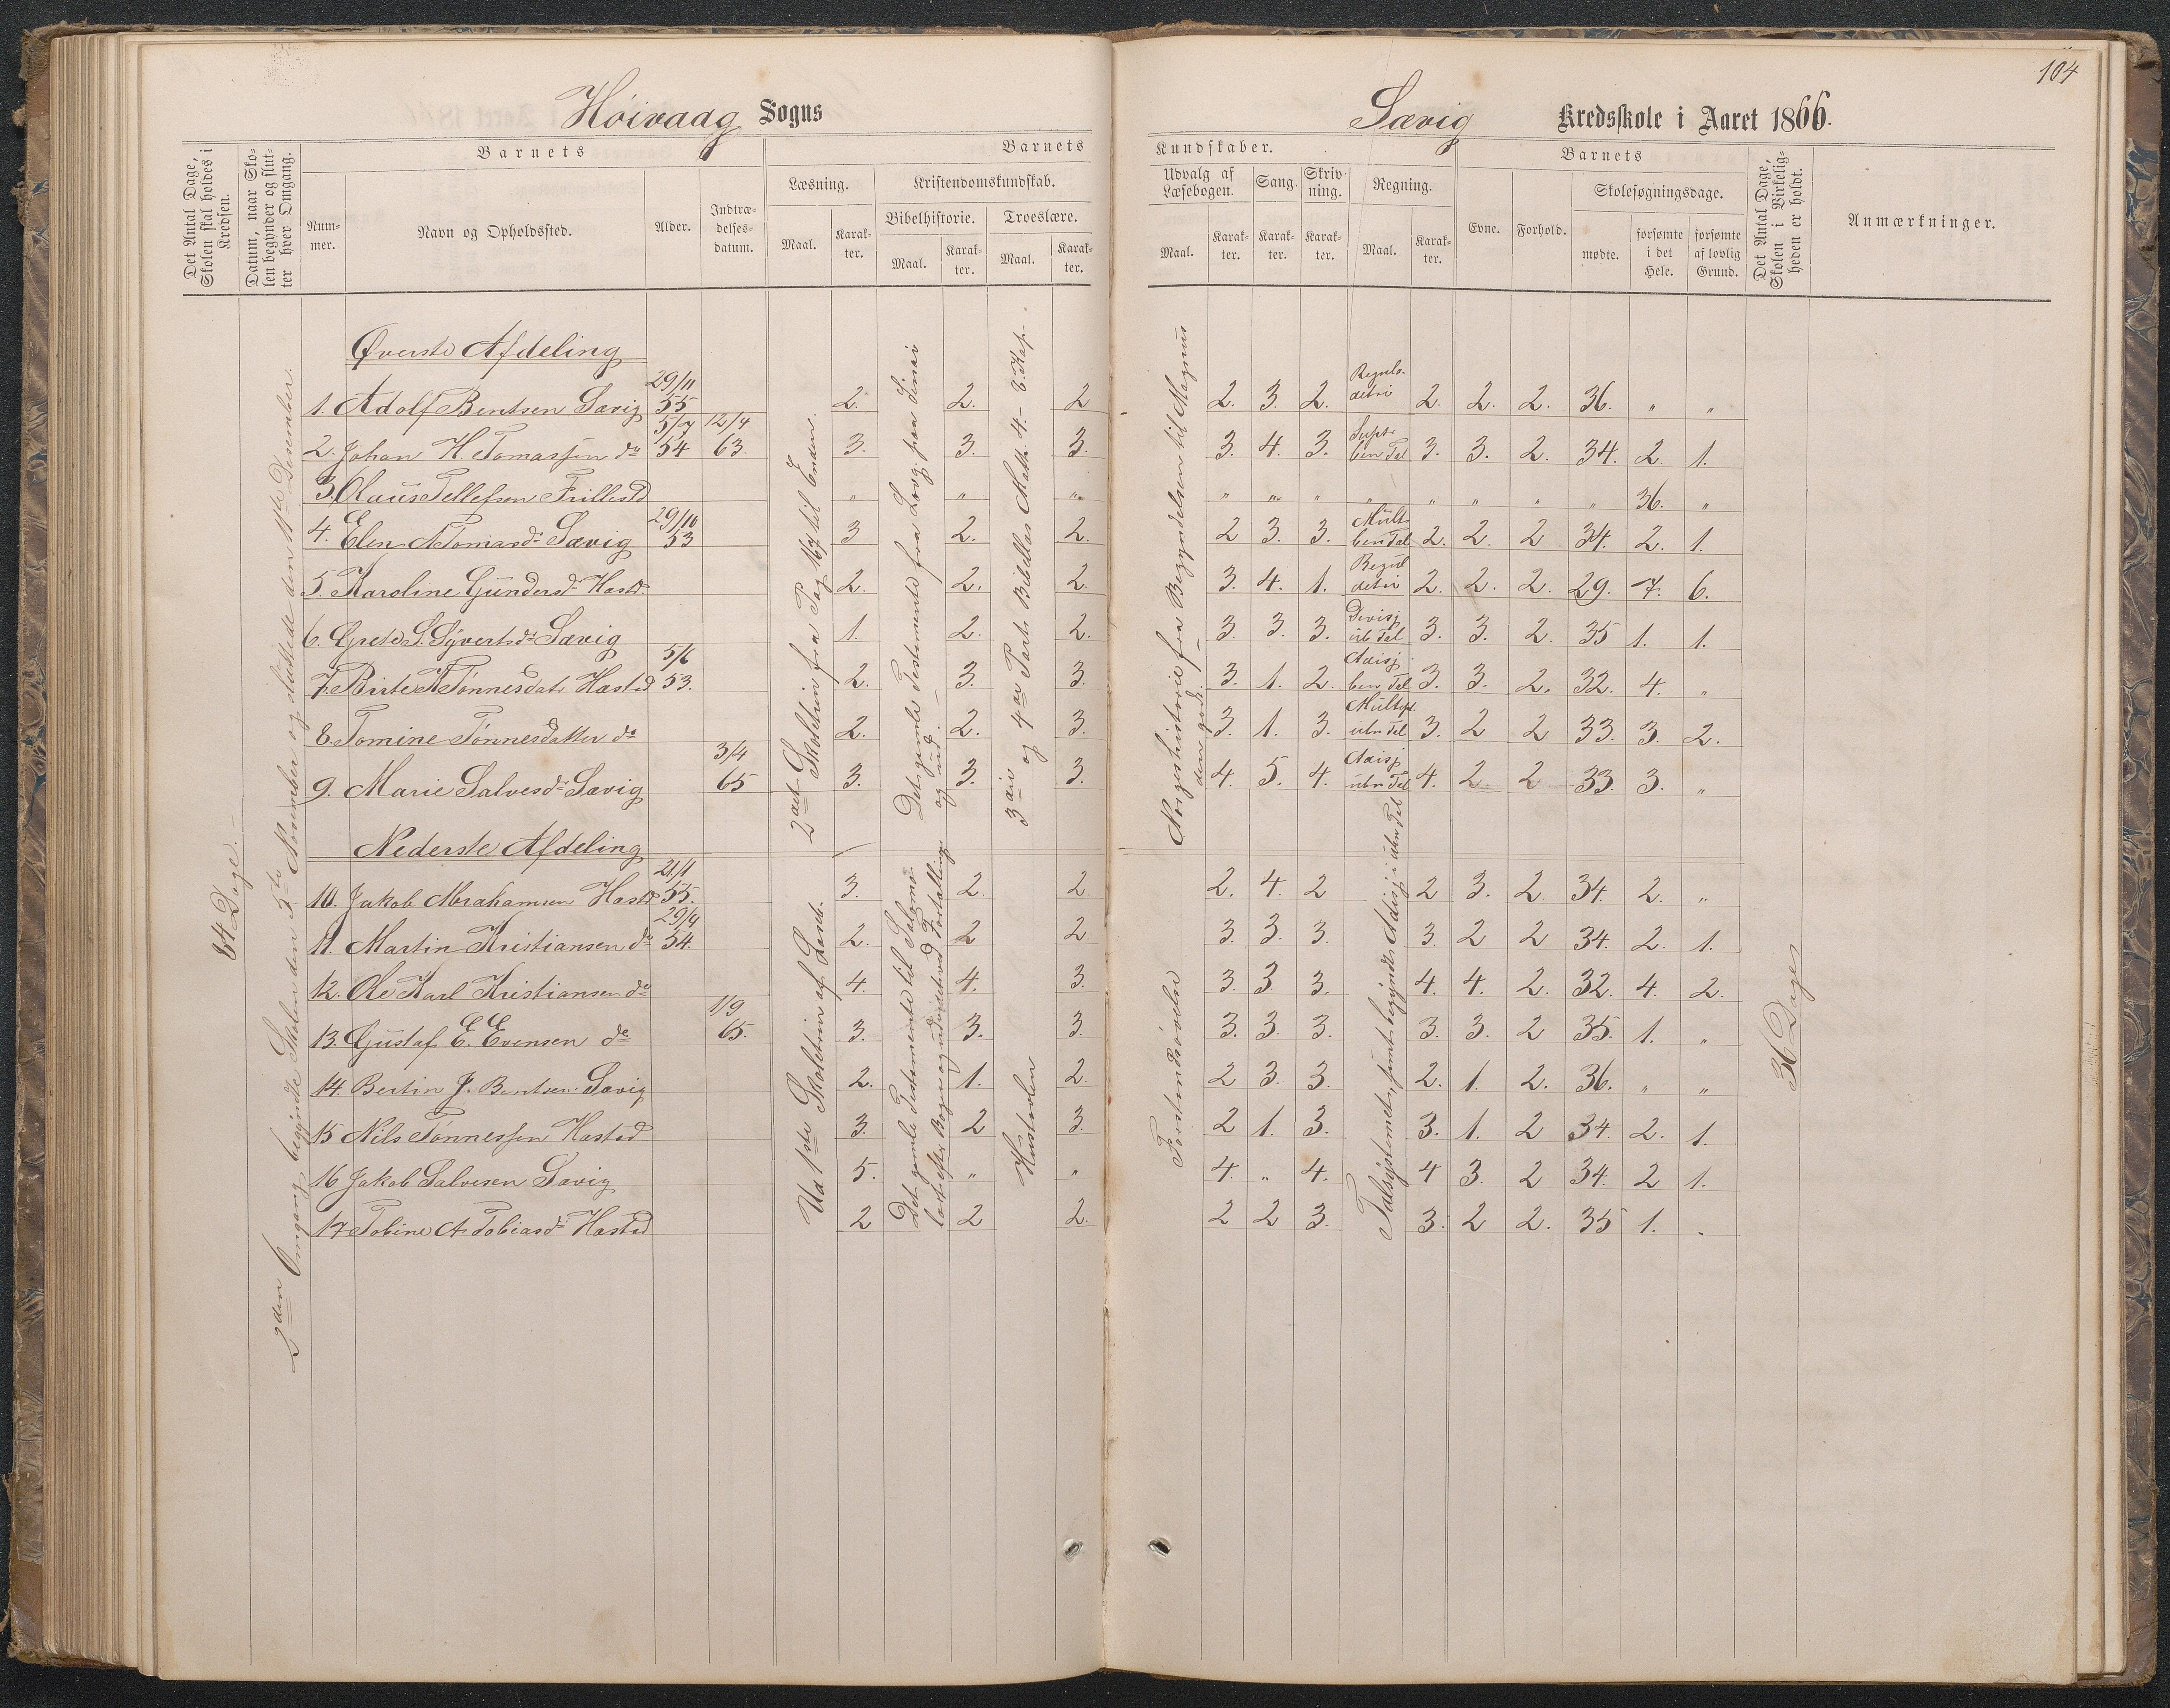 104
Höivaag Sogns
Sævig Kredsskole i Aaret 1866.
Det Antal Dage, Skolen skal holdes i Kredsen.
Datum, naar Skolen begynder og slutter hver Omgang.
Barnets
Nummer.
Navn og Opholdssted.
Alder.
Indtrædelsesdatum.
Barnets Kundskaber.
Læsning.
Maal.
Karakter.
Kristendomskundskab.
Bibelhistorie.
Maal.
Karakter.
Troeslære.
Maal.
Karakter.
Udvalg af Læsebogen.
Maal.
Karakter.
Sang.
Karakter.
Skrivning.
Karakter.
Regning.
Maal.
Karakter.
Barnets
Evne.
Forhold.
Skolesøgningsdage.
mødte.
forsømte i det Hele.
forsømte af lovlig Grund.
Det Antal Dage, Skolen i Virkeligheden er holdt.
Anmærkninger.
84 Dage.
2den Omgang begyndte Skolen den 5te November og sluttede den 11te Desember.
Øverste Afdeling
1. Adolf Bentsen Sævig 29/11 55 2. 2. 2 2. 3. 2. Regula detri 2. 2. 2. 36. " "
2. Johan H. Tomassen do 5/7 54 12/4 63. 3. 3. 3. 3. 4. 3. ben Tal 3. 3. 2. 34. 2. 1.
3. Olaus Tellefsen Trillestd " " " " " " " " " " " 36. "
4. Elen A Tomasd. Sævig 29/10 53 3 2. 2. 2 3. 3. Mult ben Tal 2. 2. 2 34. 2. 1.
5. Karoline Gundersd. Hastd. 2. 2. 2. 3. 4. 1. Regul detri 2. 2. 2. 29. 7. 6.
6. Grete S. Syvertsd. Sævig 1. 2. 2. 3. 3. 3. Divisj ub Tal 3. 3. 2. 35 1. 1.
7. Birte K Tønnesdatr Hastd 5/6 53. 2. 3. 3. 3. 1. 2. Adisj ben Tal 3. 3. 2. 32. 4. "
8. Tomine Tønnesdatter do 2. 2. 3. 3. 1. 3. Multip. ubn Tal 3. 2 2 33. 3. 2.
9. Marie Salvesd. Sævig 3/4 65 3. 3. 3. 4. 5. 4. Adisj ubn Tal 4. 2. 2 33. 3. "
2det Skoletrin fra Pag 167 til Enden.
Det gamle Testamente fra Lovg. paa Sinai og ud.
3die og 4de Part. Bibellæs. Math. 4. 6. Kap.
Norgeshistorie fra Begyndelsen til Magnus den gode.
Nederste Afdeling
10. Jakob Abrahamsen Hastd. 21/1 55. 3. 2. 2 2. 4. 2 2 3. 2. 34. 2. "
11. Martin Kristiansen do 29/9 54. 2. 2 2 3. 3. 3. 3. 2 2 34. 2. 1.
12. Ole Karl Kristiansen do 4. 4. 3. 3. 3. 3. 4. 4. 2. 32. 4. 2.
13. Gustaf E. Evensen do 1/9 65. 3. 3. 3. 3. 3. 3. 3. 3. 2 35. 1. "
14. Bertin J. Bentsen Sævig 2. 1. 2. 2 3. 3. 2. 1. 2. 36. " "
15 Nils Tønnessen Hastad 3. 2 3. 2 1. 3. 3. 1. 2 34. 2. 1.
16 Jakob Salvesen Sævig 5. " " 4. " 4. 4 3. 2 34. 2 1.
17 Tobine A Tobiasd. Hastad 2 2 2. 2 2 3. 3. 2 2. 35 1. .
Ud 1ste Skoletrin af Læseb.
Det gamle Testamente til Salomo
Hustavlen
Forstandsøvelse
Talsystemet, samt begyndt Adisj i ubn Tal
36 Dage